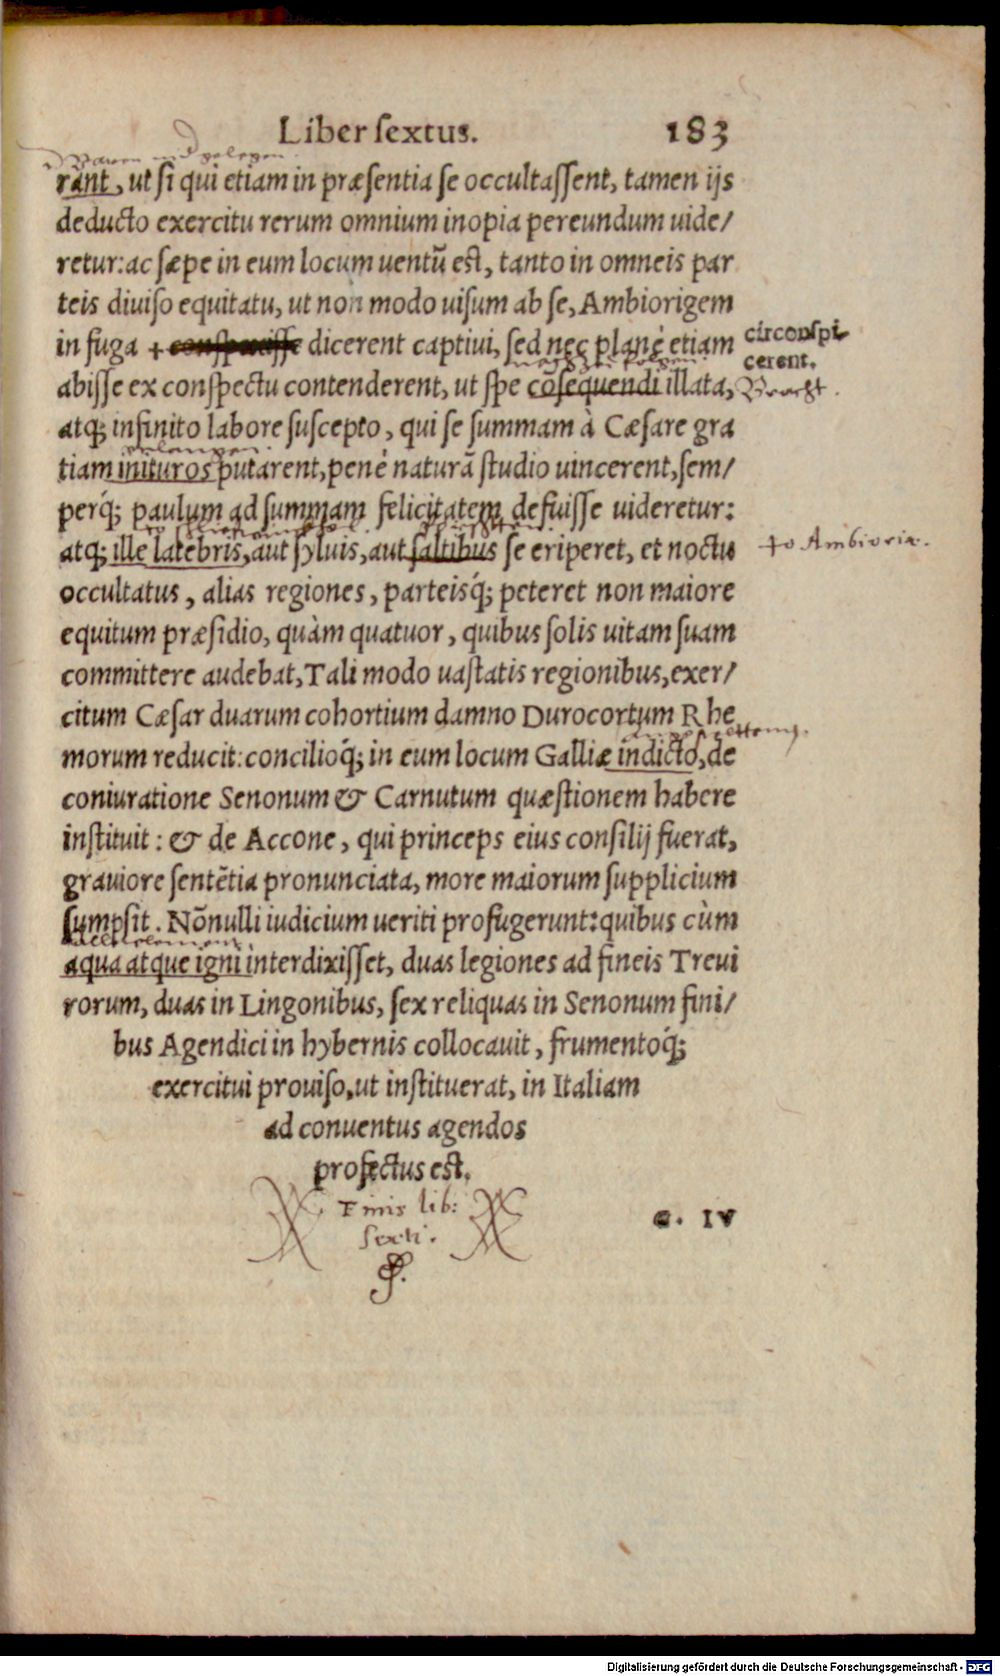 Liber sextus. 183
rant, ut si qui etiam in præsentia se occultassent, tamen ijs
deducto exercitu rerum omnium inopia pereundum uide/
retur: ac sæpe in eum locum uentũ est, tanto in omneis par
teis diuiso equitatu, ut non modo uisum ab se, Ambiorigem
in fuga + dicerent captiui, sed nec planè etiam
circonspi-
cerent.
abisse ex conspectu contenderent, ut spe cõsequendi illata,
Bracht.
atq; infinito labore suscepto, qui se summam à Cæsare gra
tiam inituros putarent, penè naturã studio uincerent, sem/
perq́; paulum ad summam felicitatem defuisse uideretur:
atq; ille latebris, aut syluis, aut saltibus se eriperet, et noctu
+o Ambiorix.
occultatus, alias regiones, parteisq́; peteret non maiore
equitum præsidio, quàm quatuor, quibus solis uitam suam
committere audebat, Tali modo uastatis regionibus, exer/
citum Cæsar duarum cohortium damno Durocortum Rhe
morum reducit: concilioq́; in eum locum Galliæ indicto, de
coniuratione Senonum & Carnutum quæstionem habere
instituit: & de Accone, qui princeps eius consilij fuerat,
grauiore sentẽtia pronunciata, more maiorum supplicium
sumpsit. Nõnulli iudicium ueriti profugerunt: quibus cùm
aqua atque igni interdixisset, duas legiones ad fineis Treui
rorum, duas in Lingonibus, sex reliquas in Senonum fini/
bus Agendici in hybernis collocauit, frumentoq́;
exercitui prouiso, ut instituerat, in Italiam
ad conuentus agendos
profectus est.
Finis lib:
sexti.
C. IV
Digitalisierung gefördert durch die Deutsche Forschungsgemeinschaft - DFG